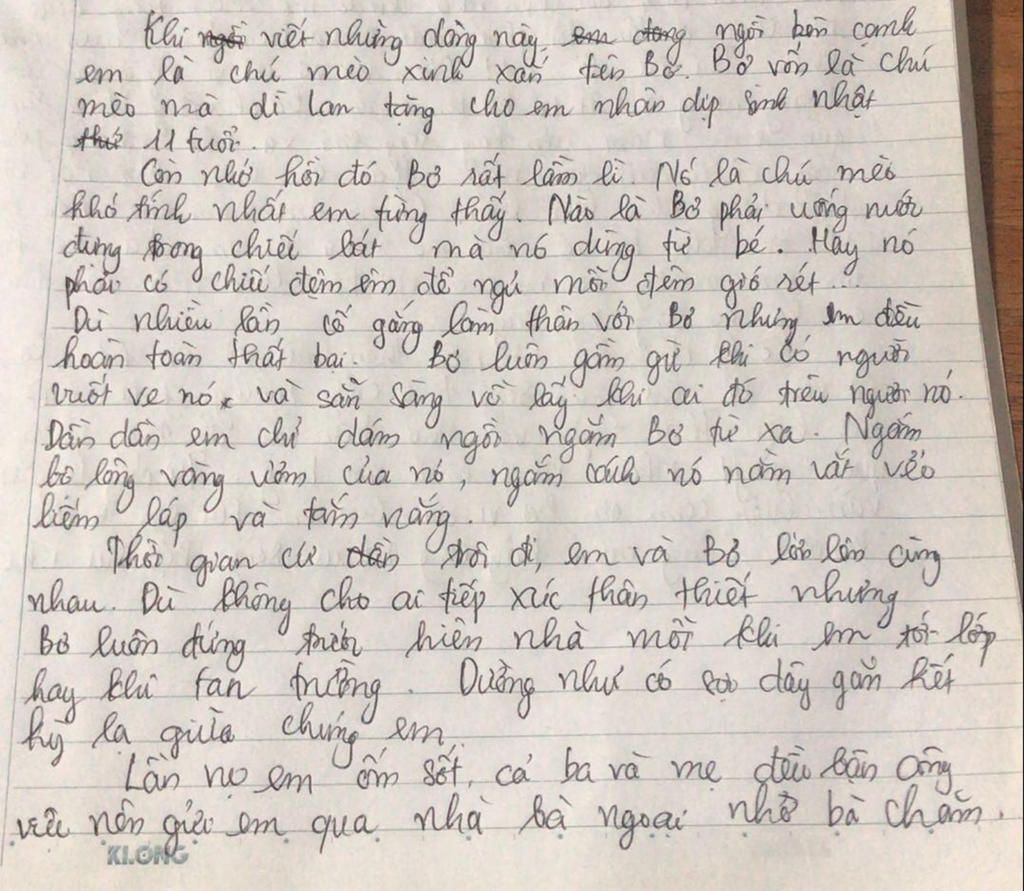 Khi ngồi viết những dòng này, em đang ngồi bên cạnh
em là chú mèo xinh xắn tên Bơ. Bơ vốn là chú
mèo mà dì Lan tặng cho em nhân dịp sinh nhật
thứ 11 tuổi.
Còn nhớ hồi đó Bơ rất lầm lì. Nó là chú mèo
khó tính nhất em từng thấy. Nào là Bơ phải uống nước
đựng trong chiếc bát mà nó dùng từ bé. Hay nó
phải có chiếc đệm êm để ngủ mỗi đêm gió rét...
Dù nhiều lần cố gắng làm thân với Bơ nhưng em đều
hoàn toàn thất bại. Bơ luôn gầm gừ khi có người
vuốt ve nó, và sẵn sàng vồ lấy khi ai đó trêu người nó.
Dần dần em chỉ dám ngồi ngắm Bơ từ xa. Ngắm
bộ lông vàng ươm của nó, ngắm cách nó nằm vắt vẻo
liếm láp và tắm nắng.
Thời gian cứ dần trôi đi, em và Bơ lớn lên cùng
nhau. Dù không cho ai tiếp xúc thân thiết nhưng
Bơ luôn đứng trước hiên nhà mỗi khi em tới lớp
hay khi tan trường. Dường như có sợi dây gắn kết
kỳ lạ giữa chúng em.
Lần nọ em ốm sốt, cả ba và mẹ đều bận công
việc nên gửi em qua nhà bà ngoại nhờ bà chăm.
KLONG